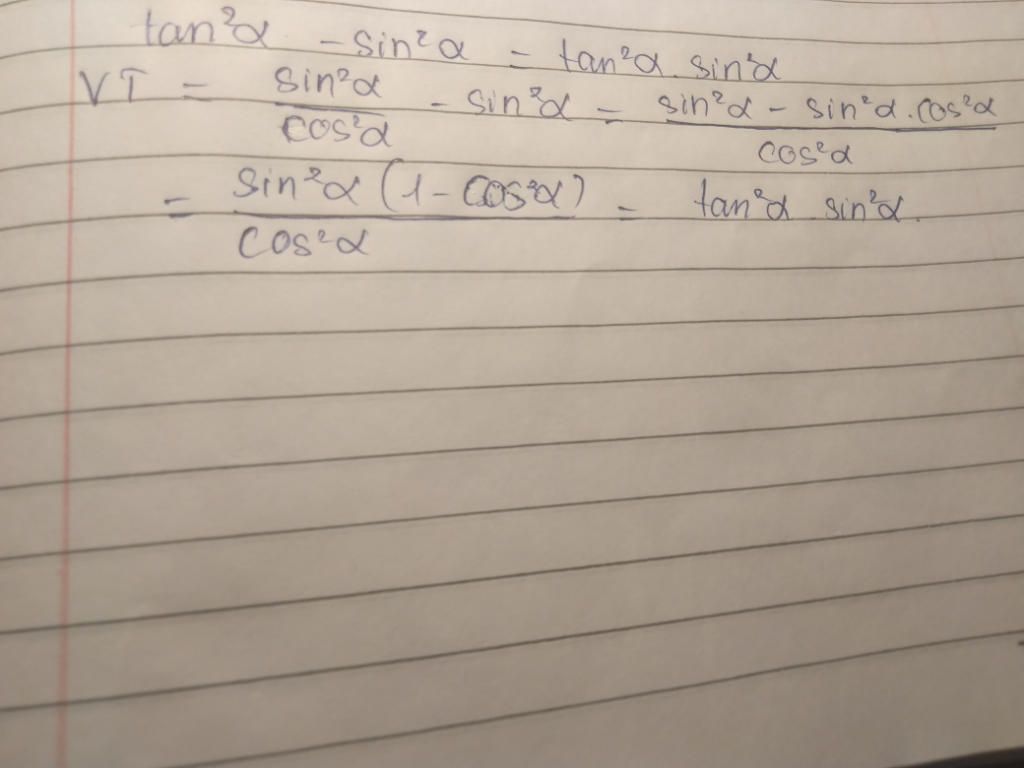 tan²α - sin²α = tan²α. sin²α
VT = sin²α/cos²α - sin²α = (sin²α - sin²α.cos²α)/cos²α
= sin²α(1-cos²α)/cos²α = tan²α sin²α.